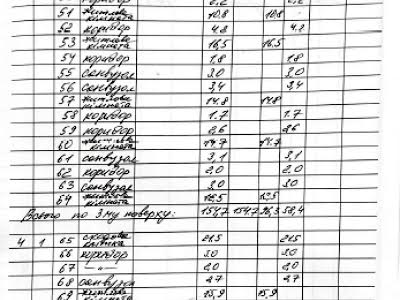 51 житлова кімната 10,8 - 10,8 -
52 коридор 4,2 4,2
53 житлова кімната 16,5 16,5
54 коридор 1,8 1,8
55 санвузол 3,0 3,0
56 санвузол 3,4 3,4
57 житлова кімната 14.8 14.8
58 коридор 1.7 1.7
59 коридор 2,6 2,6
60 житлова кімната 14.7 14.7
61 санвузол 3,1 3,1
62 коридор 2,0 2.0
63 санвузол 3,0 3,0
64 житлова кімната
Всього по 3му поверху: 154,7 154.7 96,3 58,4
4 1 65 сходова клітка 21.5 21.5
66 коридор 3.0 3.0
67 —"— 2.0 2.0
68 санвузол 2.7 2.7
69 житлова 15,9 15,9